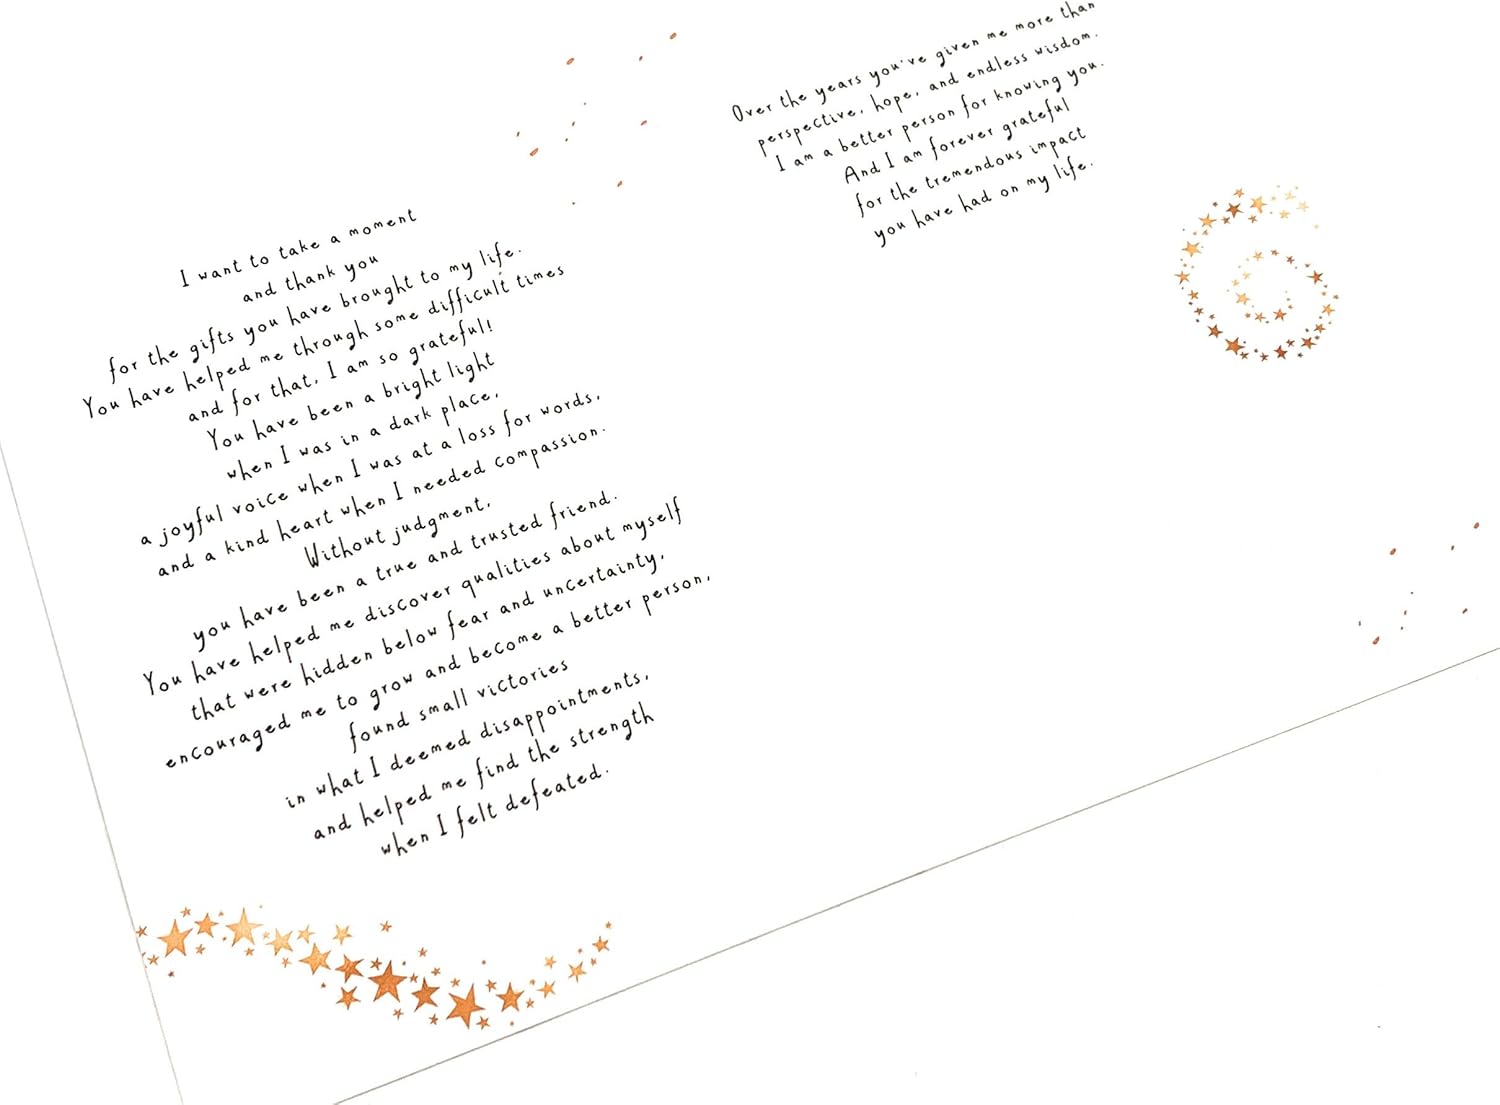 I want to take a moment
and thank you
for the gifts you have brought to my life.
You have helped me through some difficult times
and for that, I am so grateful!
You have been a bright light
when I was in a dark place,
a joyful voice when I was at a loss for words,
and a kind heart when I needed compassion.
Without judgment,
you have been a true and trusted friend.
You have helped me discover qualities about myself
that were hidden below fear and uncertainty,
encouraged me to grow and become a better person,
found small victories
in what I deemed disappointments,
and helped me find the strength
when I felt defeated.
Over the years you've given me more than
perspective, hope, and endless wisdom.
I am a better person for knowing you.
And I am forever grateful
for the tremendous impact
you have had on my life.